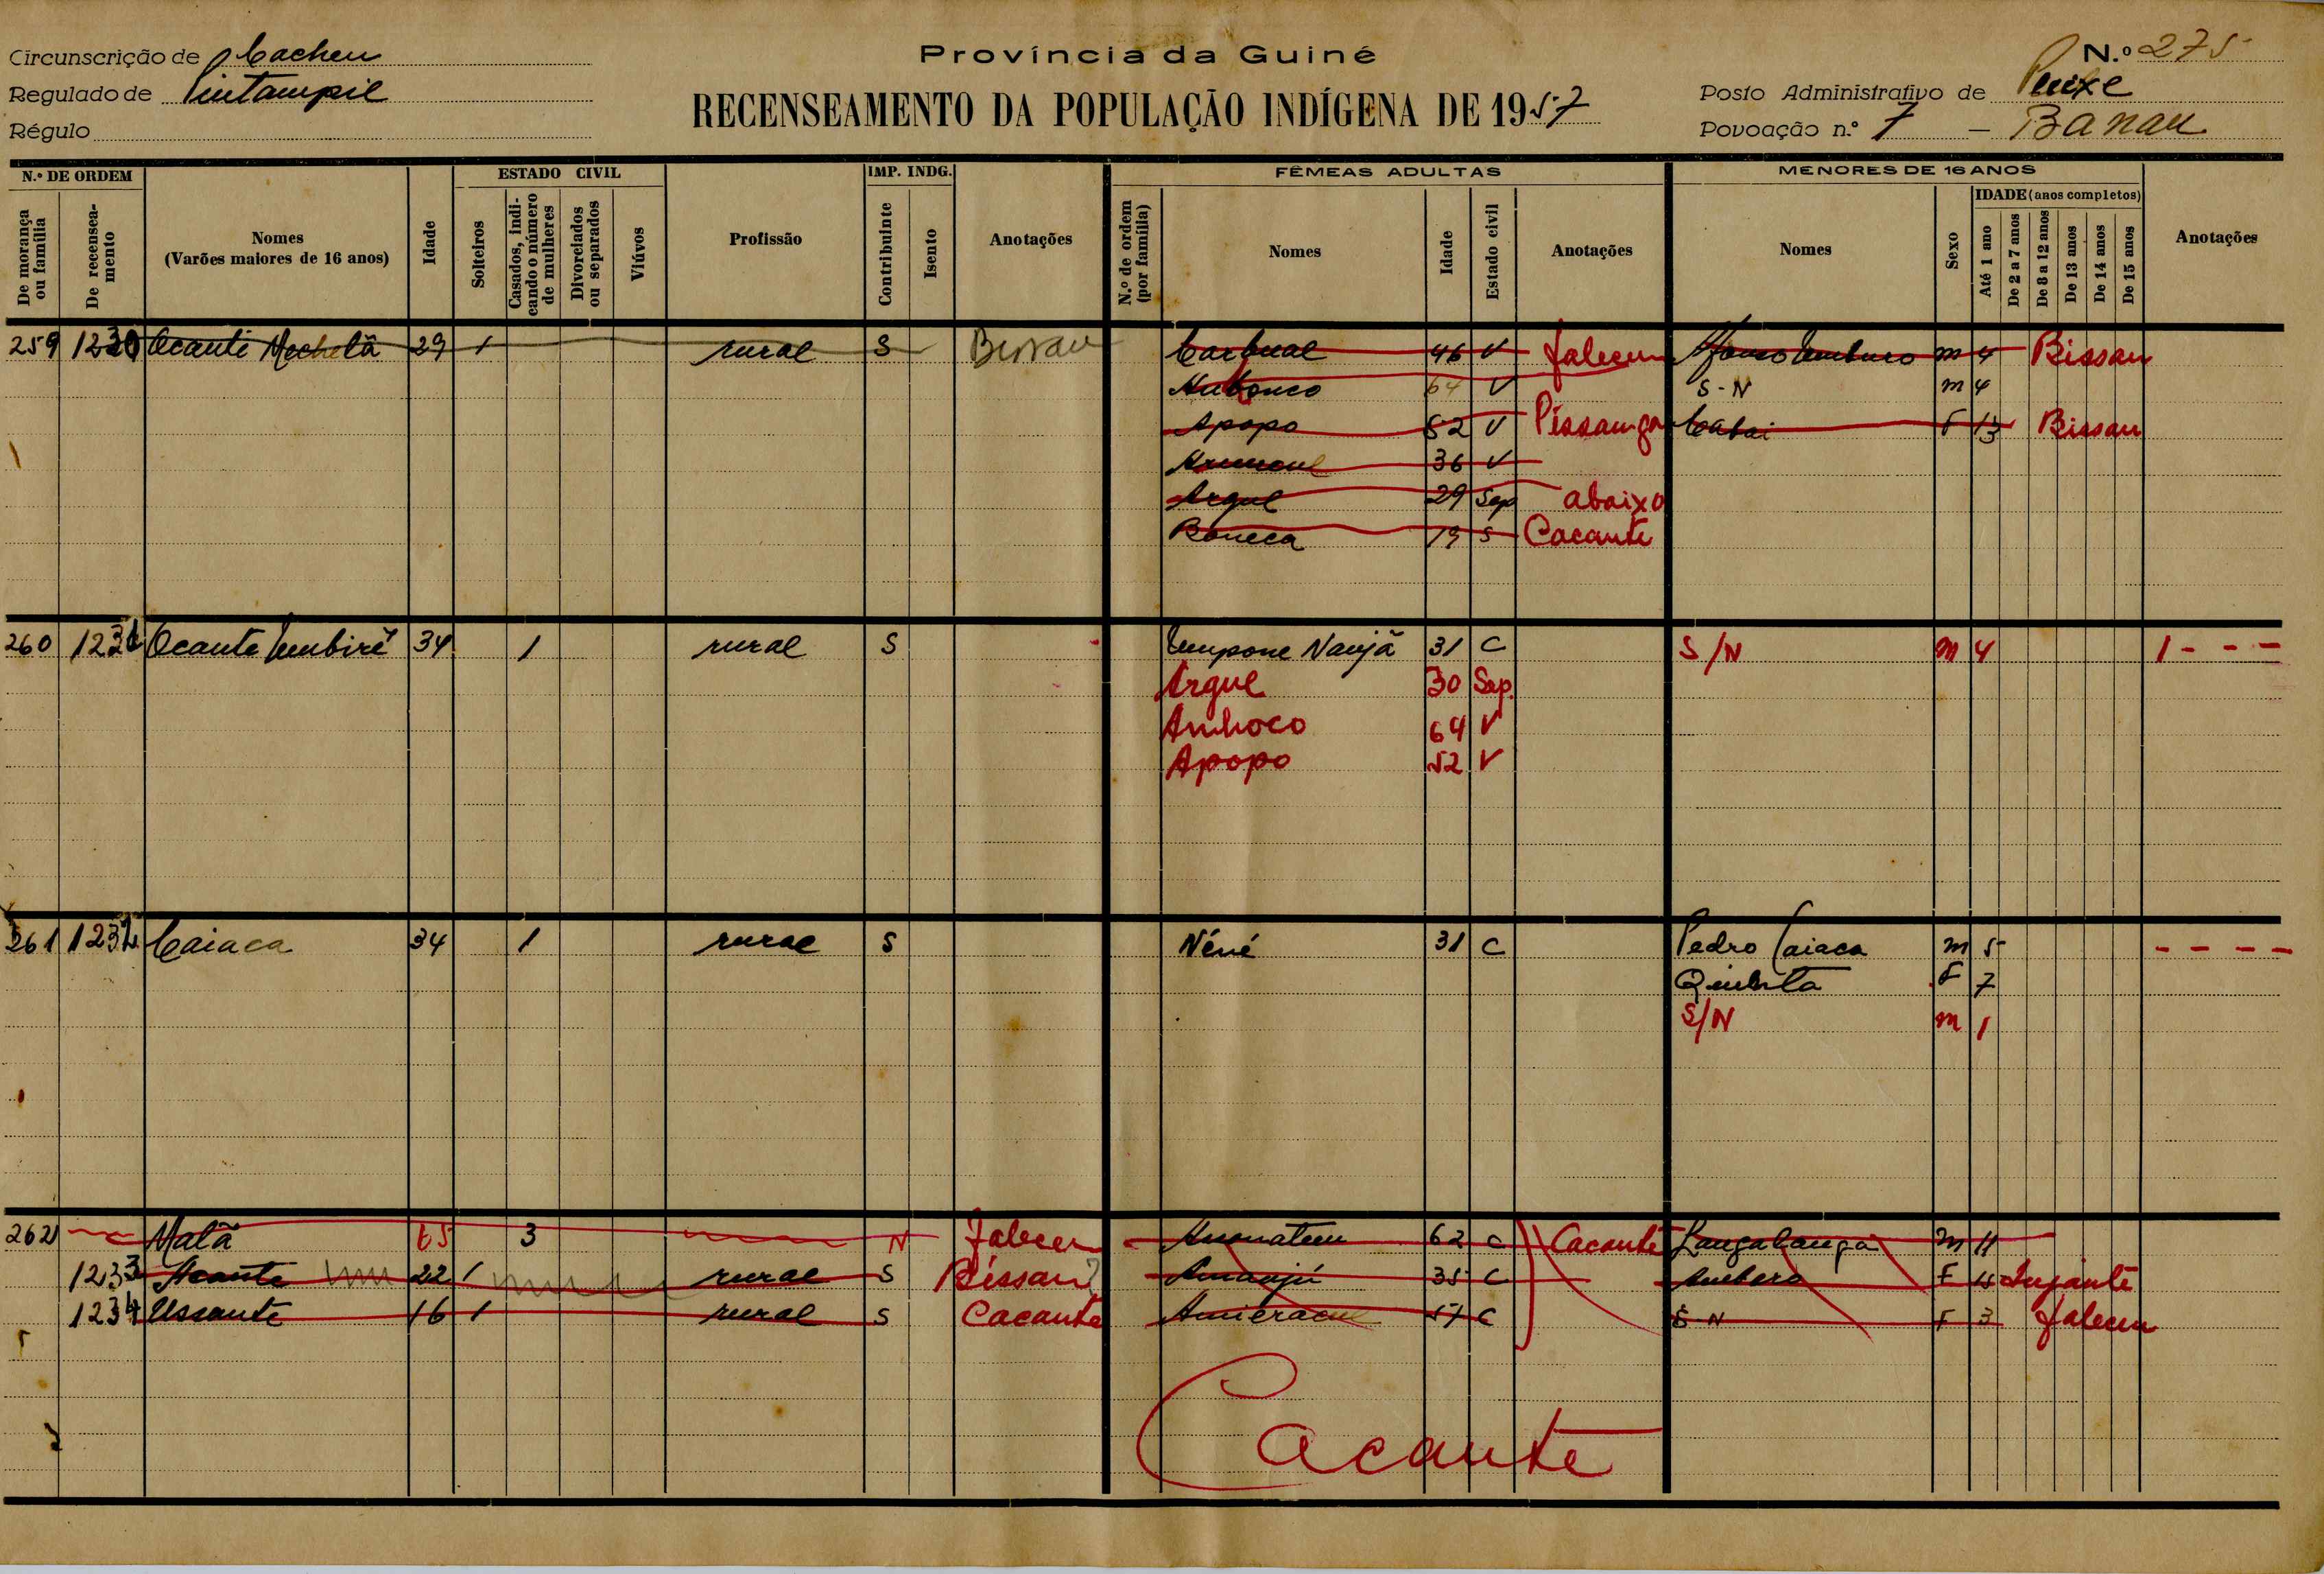 Província da Guiné
N.º 275
Circunscrição de Cacheu
Regulado de
Régulo
RECENSEAMENTO DA POPULAÇÃO INDÍGENA DE 1957
Posto Administrativo de
Povoação n.º 7 — Banau
N.º DE ORDEM
De morança ou família
De recenseamento
Nomes
(Varões maiores de 16 anos)
Idade
ESTADO CIVIL
Solteiros
Casados, indicando o número de mulheres
Divorciados ou separados
Viúvos
Profissão
IMP. INDG.
Contribuinte
Isento
Anotações
FÊMEAS ADULTAS
N.º de ordem (por família)
Nomes
Idade
Estado civil
Anotações
MENORES DE 16 ANOS
Nomes
Sexo
IDADE (anos completos)
Até 1 ano
De 2 a 7 anos
De 8 a 12 anos
De 13 anos
De 14 anos
De 15 anos
Anotações
259 1230 Ocante 29 1 rural S Bissau 46 V faleceu Afonso m 4 Bissau
64 V S-N m 4
Apopo 52 V Pissanga Cabai F 13 Bissau
36 V
Argul 29 Sep abaixo
Boneca 19 S Cacante
260 1231 Ocante 34 1 rural S 31 C S/N m 4 1 - - -
Argul 30 Sep.
Amboco 64 V
Apopo 52 V
261 1232 Caiaca 34 1 rural S Néné 31 C Pedro Caiaca m 5 - - - -
F 7
S/N m 1
262 Malã 65 3 N Falecer 62 C Cacante Langalanga m 11
1233 22 1 rural S Bissau 35 C F
1234 Ussante 16 1 rural S Cacante 57 C S-N F 3 faleceu
Cacante